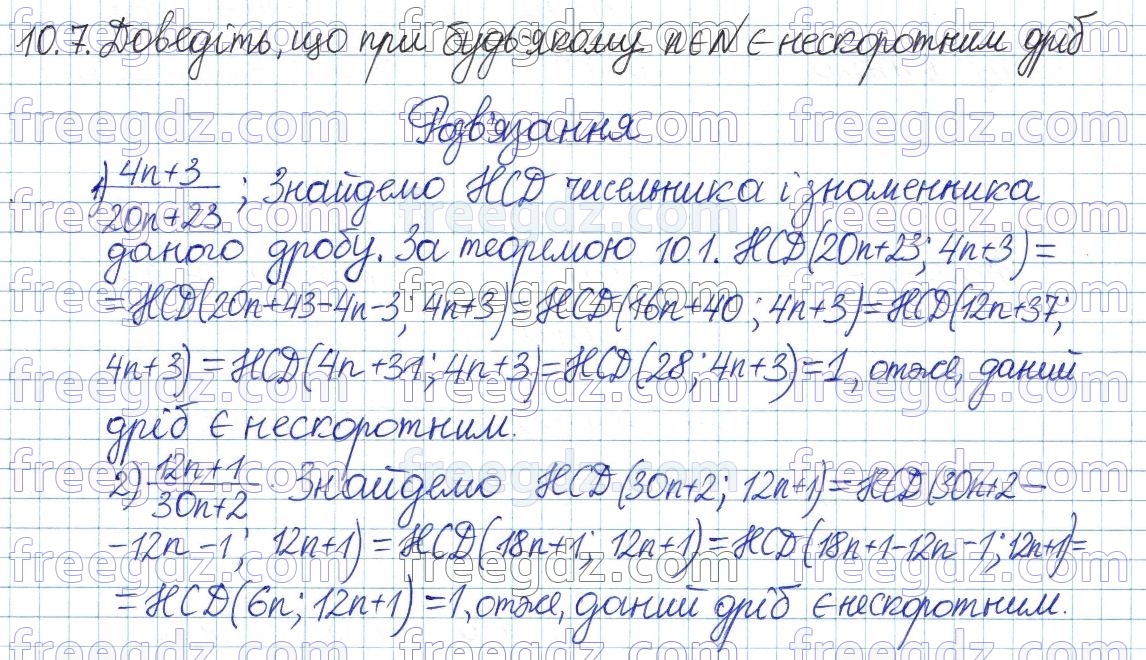 10.7. Доведіть, що при будь-якому n∈N є нескоротним дріб
Розв'язання
1) 4n+3/20n+23; Знайдемо НСД чисельника і знаменника
даного дробу. За теоремою 10.1. НСД(20n+23; 4n+3)=
=НСД(20n+43-4n-3; 4n+3)=НСД(16n+40; 4n+3)=НСД(12n+37;
4n+3)=НСД(4n+31; 4n+3)=НСД(28; 4n+3)=1, отже, даний
дріб є нескоротним.
2) 12n+1/30n+2. Знайдемо НСД(30n+2; 12n+1)=НСД(30n+2-
-12n-1; 12n+1)=НСД(18n+1; 12n+1)=НСД(18n+1-12n-1; 12n+1)=
=НСД(6n; 12n+1)=1, отже, даний дріб є нескоротним.
freegdz.com freegdz.com freegdz.com